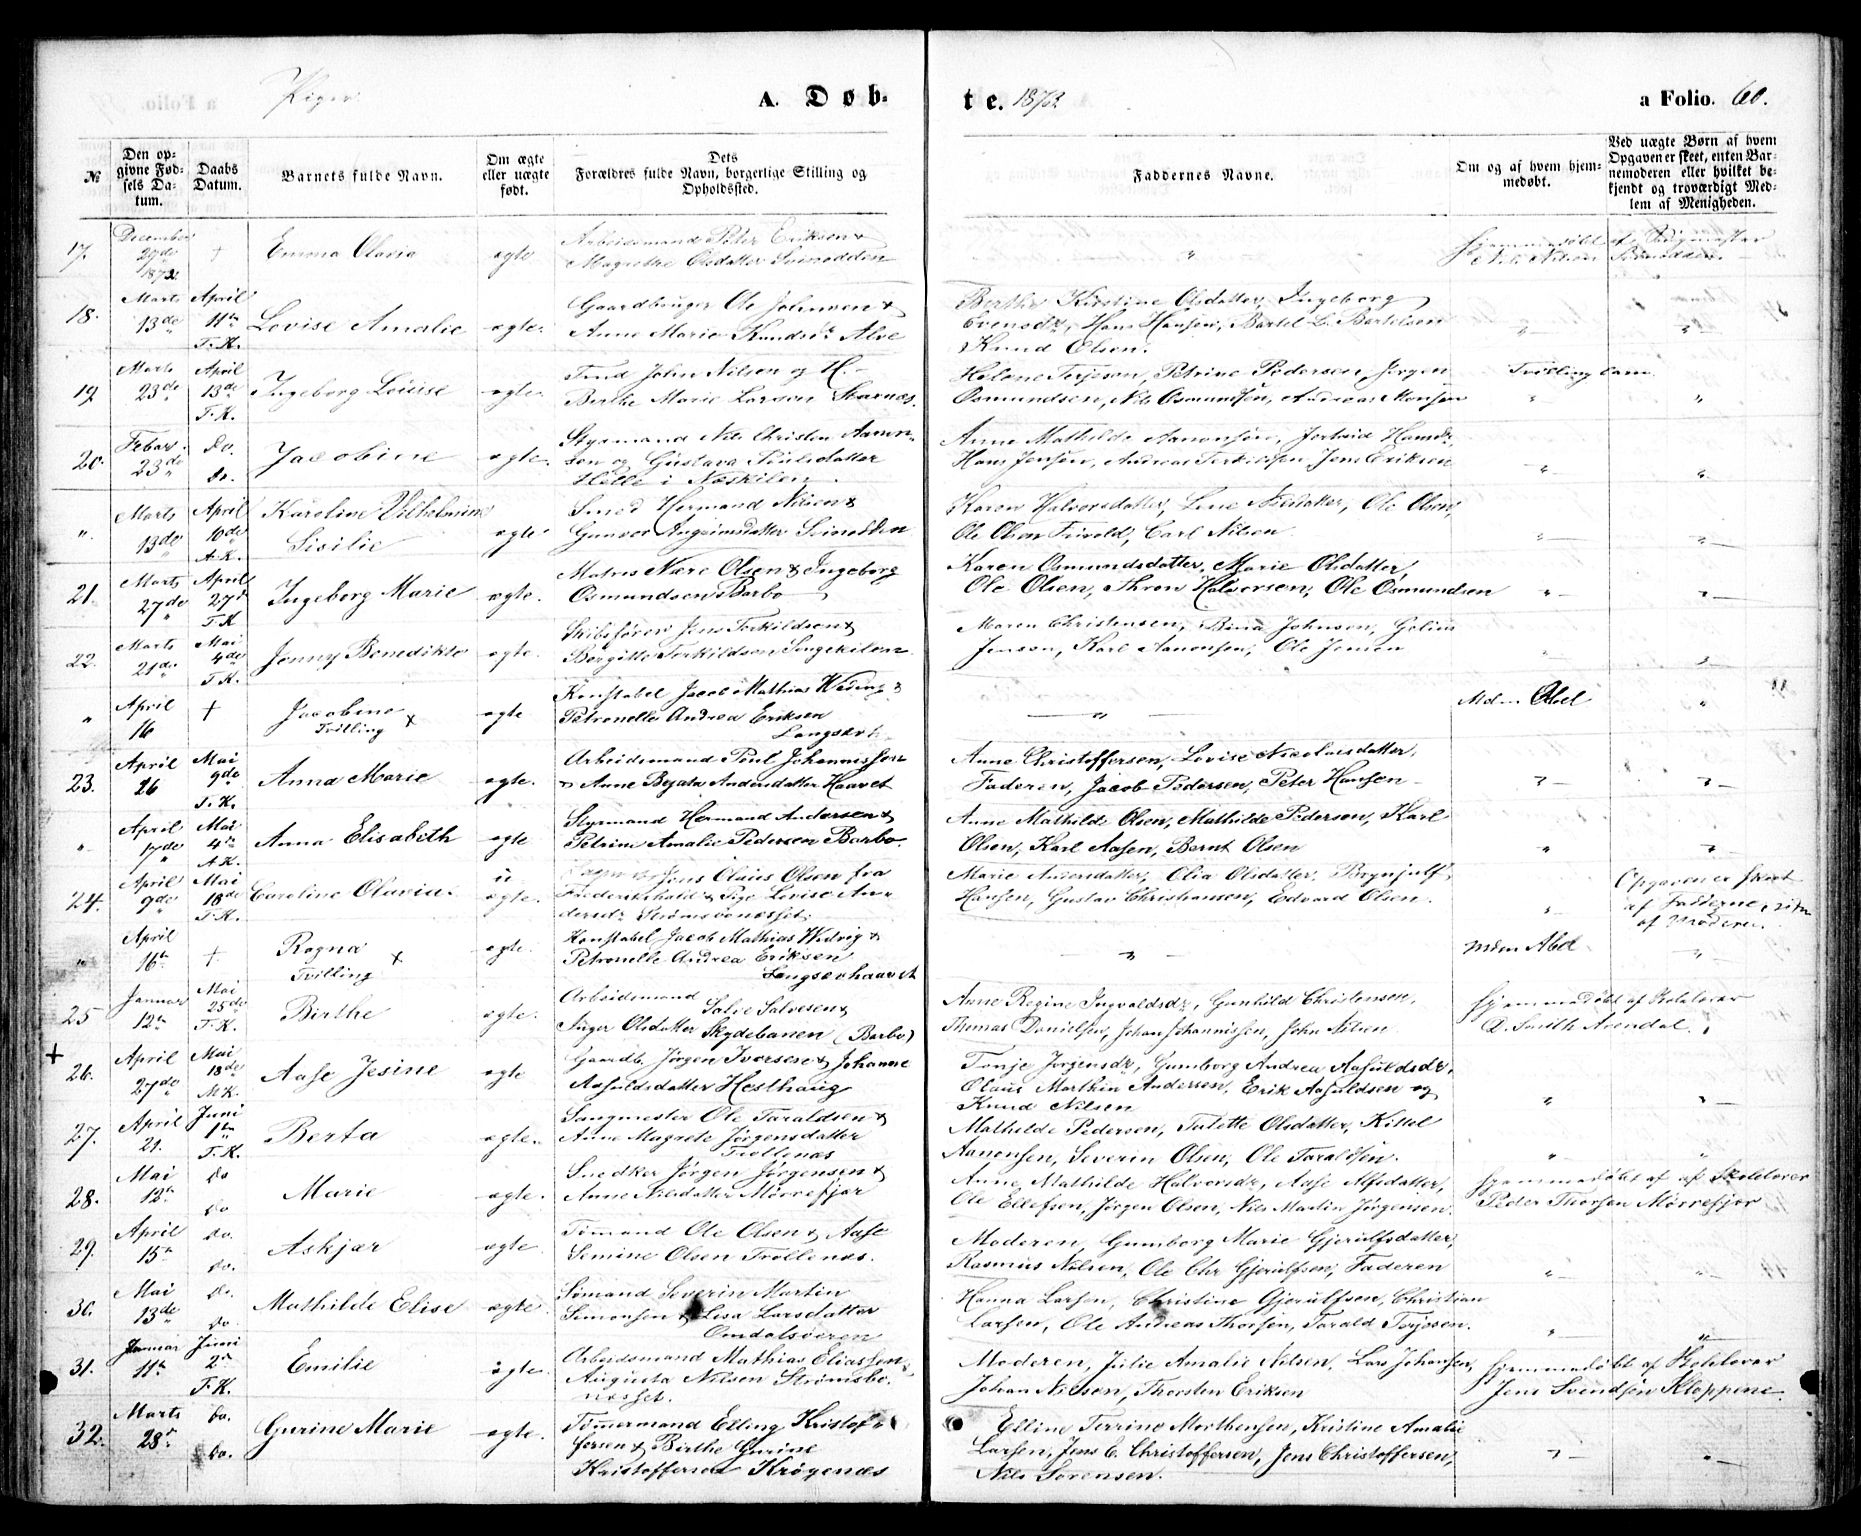 Piger.
A. Døb-
te. 1873
a Folio. 60.
№
Den opgivne Fødsels Datum.
Daabs Datum.
Barnets fulde Navn.
Om ægte eller uægte født.
Dets Forældres fulde Navn, borgerlige Stilling og Opholdssted.
Faddernes Navne.
Om og af hvem hjemmedøbt.
Ved uægte Børn af hvem Opgaven er skeet, enten Barnemoderen eller hvilket bekjendt og troværdigt Medlem af Menigheden.
17. December 27de 1872 † Emma Olavia ægte Arbeidsmand Peter Eriksen &
Magrethe Olsdatter Svinodden " Hjemmedøbt af
18. Marts 13de April 11te T.K. Lovise Amalie ægte. Gaardbruger Ole Johnsen &
Anne Marie Knudsdr Alve
Berthe Kirstine Olsdatter, Ingeborg
Evensdr, Hans Hansen, Bertel L. Bertelsen
Knud Olsen.
19 Marts 23de April 13de T.K. Ingeborg Lovise ægte. John Nilson og H.
Birthe Marie Larsen Skarnæs.
Helene Terjeson, Petrine Pedersen, Jørgen
Osmundsen, Nils Osmundsen, Andreas Monsen
Tvillingbarn
20. Febar. 23de do. do. Jacobine ægte. Styrmand Nils Christen Aanon-
sen og Gustava Poulsdatter
Helle i Næskilen
Anne Mathilde Aanonsen, Hansdr,
Hans Jensen, Andreas Terkildsen Jens Eriksen
". Marts 13de April 10de A.K. Karoline Vilhelmine
Sisilie ægte. Smed Hermand Nilsen &
Gunvor Svinodden
Karen Halvorsdatter, Lene Nilsdatter, Ole Olsen,
Ole Olsen Carl Nilsen
21. Marts 27de April 27de T.K. Ingeborg Marie ægte. Matros Nære Olsen & Ingeborg
Osmundsen Barbo
Karen Osmundsdatter, Marie Olsdatter,
Ole Olsen, Thron Halvorsen, Ole Osmundsen
22. Marts 21de Mai 4de T.K. Jenny Benedikte ægte. Skibsfører Jens Terkildsen &
Bergitte Terkildsen Songekilen
Maren Christensen, Bina Johnsen, Golius
Jenson, Karl Aanonsen, Ole Jensen
" April 16 † Jacobine
Tvilling × ægte Konstabel Jacob Mathias Weding &
Petronelle Andrea Eriksen
" Mdm Abel
23. April 26 Mai 9de T.K. Anna Marie ægte. Arbeidsmand Poul Johannissen
& Anne Andersdatter Haavet
Anne Christoffersen, Lovise Nicolaisdatter,
Faderen, Jacob Pedersen, Peter Hansen
" April 17de Mai 4de A.K. Anna Elisabeth ægte Styrmand Hermand Andersen &
Petrine Amalie Pedersen Barbo
Anne Mathilde Olsen, Mathilde Pedersen, Karl
Olsen, Karl Aasen, Bernt Olsen
24. April 9de Mai 18de T.K. Caroline Olavia u ægte. Jens Claus Olsen fra
Frederikshald & Pige Lovise An-
dersdr Strømsbonæsset.
Marie Andersdatter, Olia Olsdatter, Brynjulf
Hansen, Gustav Christiansen, Edvard Olsen.
Opgaven er skeet
af Fadderne,
af Moderen.
" April 16de † Ragna
Tvilling × ægte. Konstabel Jacob Mathias Widvig &
Petronelle Andrea Eriksen
Langsevhaavet
" Mdm Abel
25 Januar 12te Mai 25de T.K. Birthe ægte. Arbeidsmand Salve Salvesen &
Inger Olsdatter Skydebanen (Barbo)
Anne Regine Ingvaldsdr, Gunhild Christensen,
Thomas Danielsen, Johan Johannissen, John Nilsen
Hjemmedøbt af Skolelærer
A. Smith Arendal.
+ 26. April 27de Mai 18de M.K. Aase Jesine ægte Gaardb. Jørgen Iversen & Johanne
Aasuldsdatter Hesthaug
Tonje Jørgensdr, Gumborg Andrea Aasuldsdr,
Olaus Marthin Andersen, Erik Aasuldsen og
Knud Nilsen
27. April 21. Juni 1te T.K. Berta ægte. Sangmester Ole Taraldsen &
Anne Magrete Jørgensdatter
Trollenæs
Mathilde Pedersen, Talette Olsdatter, Kittel
Aanonsen, Severin Olsen, Ole Taraldsen.
28. Mai 12te do do Marie ægte. Snedker Jørgen Jørgensen &
Anne Nilsdatter Mørrefjær
Anne Mathilde Halvorsdr, Aase Alfsdatter,
Ole Ellefsen, Jørgen Olsen, Nils Martin Jørgensen.
Hjemmedøbt af af Skolelærer
Peder Thorsen Mørrefjær
29. April 15te do. do. Askjær ægte Sømand Ole Olsen & Aase
Semine Olsen Trollenæs.
Moderen, Gumborg Marie Gjerulfsdatter,
Rasmus Nilsen, Ole Chr Gjerulfsen, Faderen
30. Mai 13de do. do Mathilde Elise ægte. Sømand Severin Martin
Simonsen & Lisa Larsdatter
Omdalsøeren
Hanna Larsen, Christine Gjerulfsen, Christian
Larsen, Ole Andreas Thorsen, Tarald Terjesen.
31. Januar 11te Juni 2de T.K. Emilie ægte. Arbeidsmand Mathias Eliassen &
Augusta Nilsen Strømsbo-
næsset.
Moderen, Julie Amalie Nilsen, Lars Johansen,
Johan Nielsen, Thorsten Eriksen
Hjemmedøbt af Skolelærer
Jens Svendsen Kloppene
32. Marts 28de do. do. Gurine Marie ægte. Tømmermand Elling Kristof-
fersen & Birthe Gurine
Kristoffersen Krøgenæs
Elline Terrine Morthensen, Kristine Amalie
Larsen, Jens C. Christoffersen, Jens Christoffersen,
Nils Sørensen.